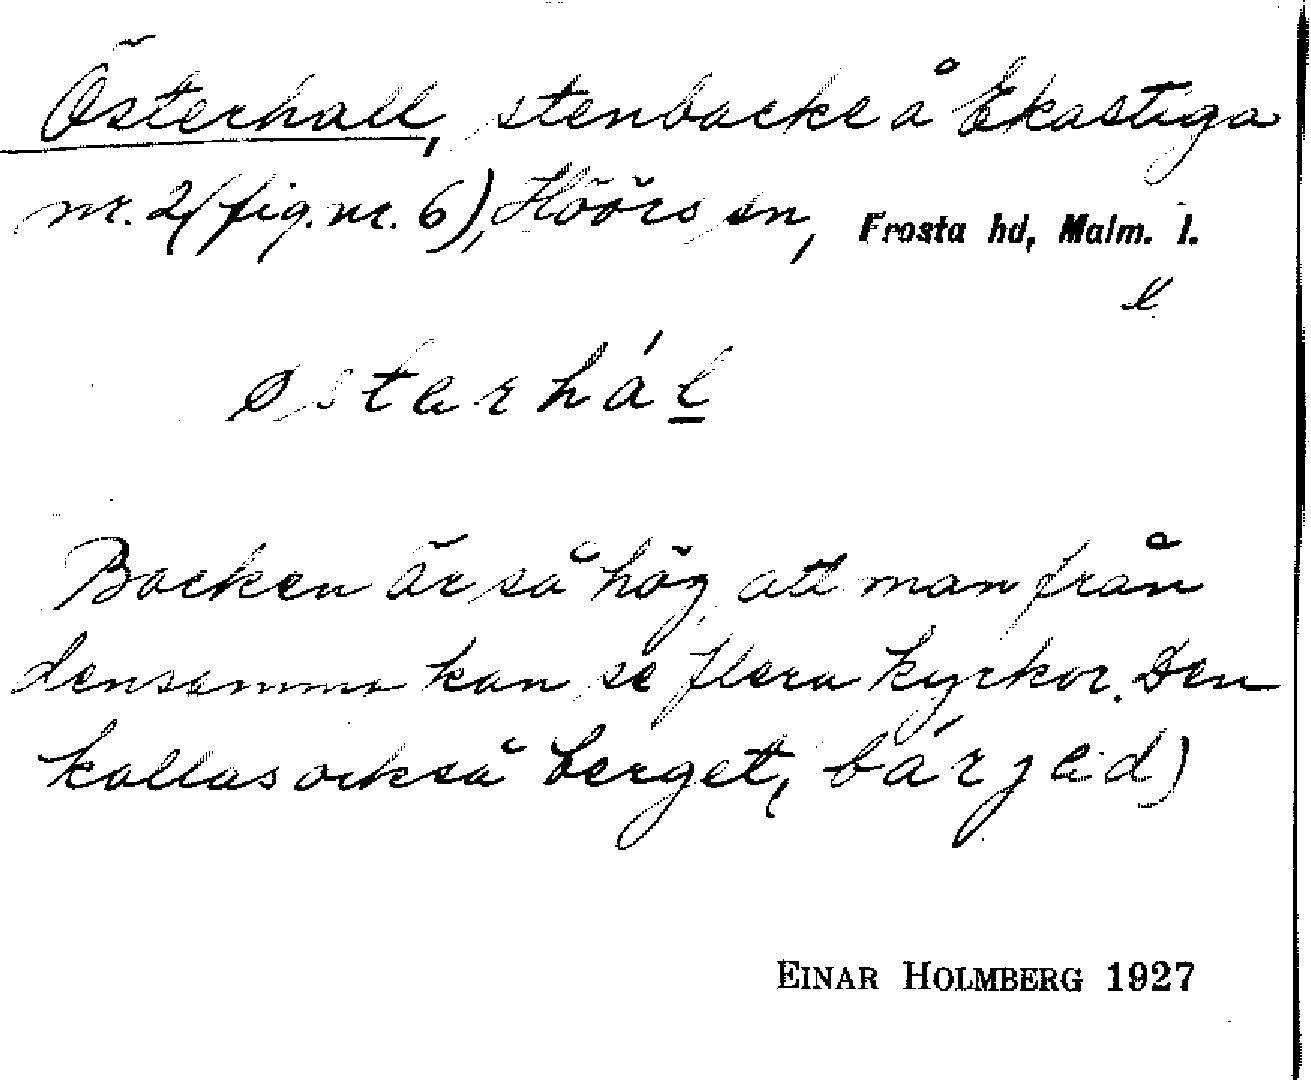 Österhall, stenbacke å Ekastiga
nr. 2 (fig. nr. 6), Höörs sn, Frosta hd, Malm. l.
østarhál
Backen är så hög att man från
densamma kan se flera kyrkor. Den
kallas också berget,
EINAR HOLMBERG 1927